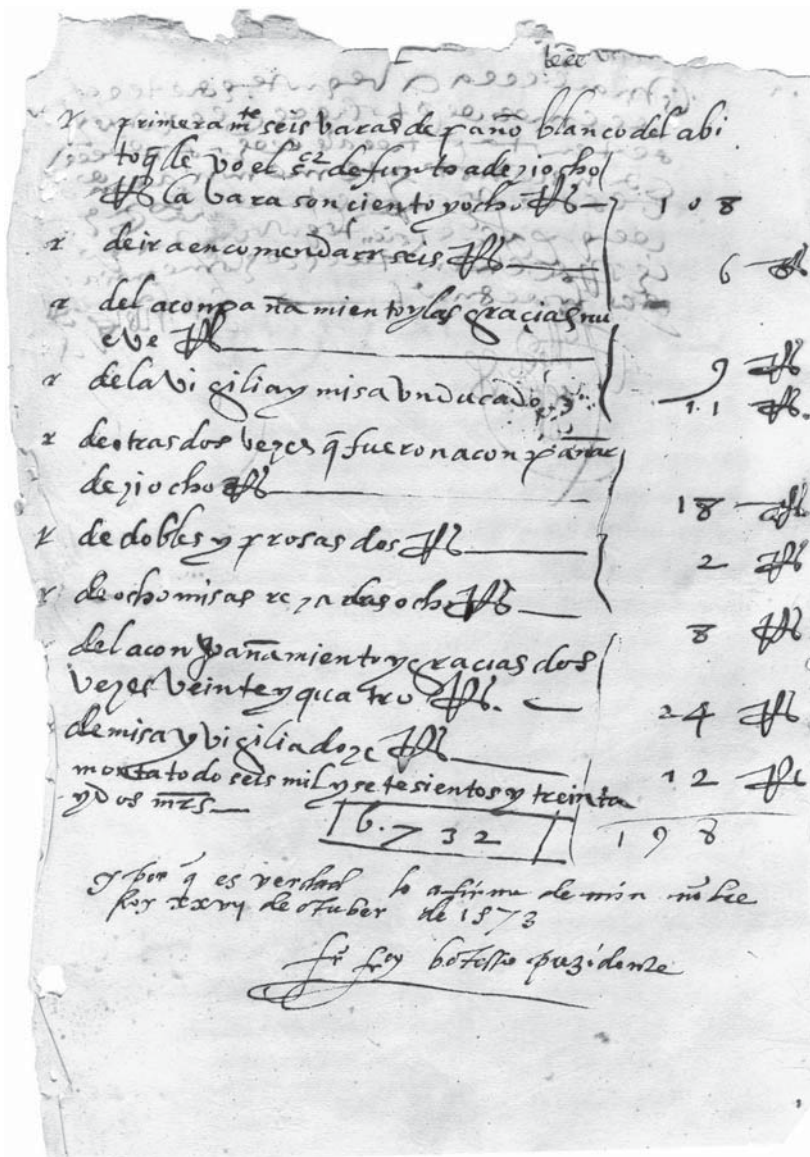 primeramte seis varas de paño blanco del abi
to q̃ lle vo el defunto a deziocho
Rs la vara son ciento y ocho Rs 108
de ir a encomendarr seis Rs 6 Rs
del aconpañamiento y las gracias nu
eve Rs 9 Rs
de la vigilia y misa vn ducado 11 Rs
de otras dos vezes q̃ fueron a conpañar
deziocho Rs 18 Rs
de dobles y prosas dos Rs 2 Rs
de ocho misas rezadas ocho Rs 8 Rs
del aconpañamiento y gracias dos
vezes veinte y quatro Rs. 24 Rs
de misa y vigilia doze Rs 12 Rs
monta todo seis mil y setesientos y treinta
y dos mrs 6.732 198
y por q̃ es verdad lo afirme de min nõbre
xxvj de otuber de 1573
fr botello prezidente